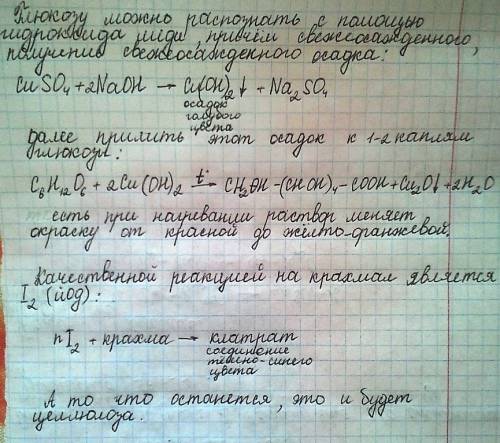 Глюкозу можно распознать с помощью
гидроксида меди, причём свежеосажденного,
получение свежеосажденного осадка:
CuSO₄ + 2NaOH → Cu(OH)₂↓ + Na₂SO₄
осадок
голубого
цвета
далее прилить этот осадок к 1-2 каплям
глюкозы:
C₆H₁₂O₆ + 2Cu(OH)₂ t° → CH₂OH-(CHOH)₄-COOH+Cu₂O↓+2H₂O
есть при нагревании раствор меняет
окраску от красной до жёлто-оранжевой.
Качественной реакцией на крахмал является
I₂ (йод):
nI₂ + крахма → клатрат
соединение
темно-синего
цвета
А то что останется, это и будет
целлюлоза.